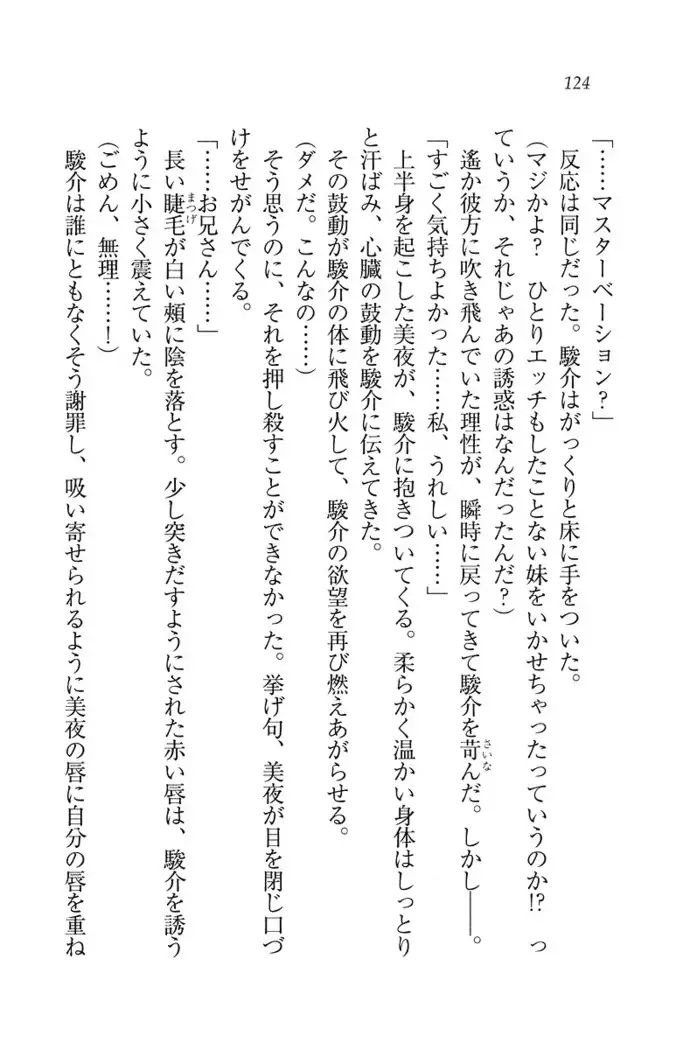 124
「……マスターベーション？」
反応は同じだった。駿介はがっくりと床に手をついた。
(マジかよ？　ひとりエッチもしたことない妹をいかせちゃったっていうのか!?　っ
ていうか、それじゃあの誘惑はなんだったんだ？)
遙か彼方に吹き飛んでいた理性が、瞬時に戻ってきて駿介を苛んだ。しかし――。
さいな
「すごく気持ちよかった……私、うれしい……」
上半身を起こした美夜が、駿介に抱きついてくる。柔らかく温かい身体はしっとり
と汗ばみ、心臓の鼓動を駿介に伝えてきた。
その鼓動が駿介の体に飛び火して、駿介の欲望を再び燃えあがらせる。
(ダメだ。こんなの……)
そう思うのに、それを押し殺すことができなかった。挙げ句、美夜が目を閉じ口づ
けをせがんでくる。
「……お兄さん……」
長い睫毛が白い頰に陰を落とす。少し突きだすようにされた赤い唇は、駿介を誘う
まつげ
ように小さく震えていた。
(ごめん、無理……！)
駿介は誰にともなくそう謝罪し、吸い寄せられるように美夜の唇に自分の唇を重ね